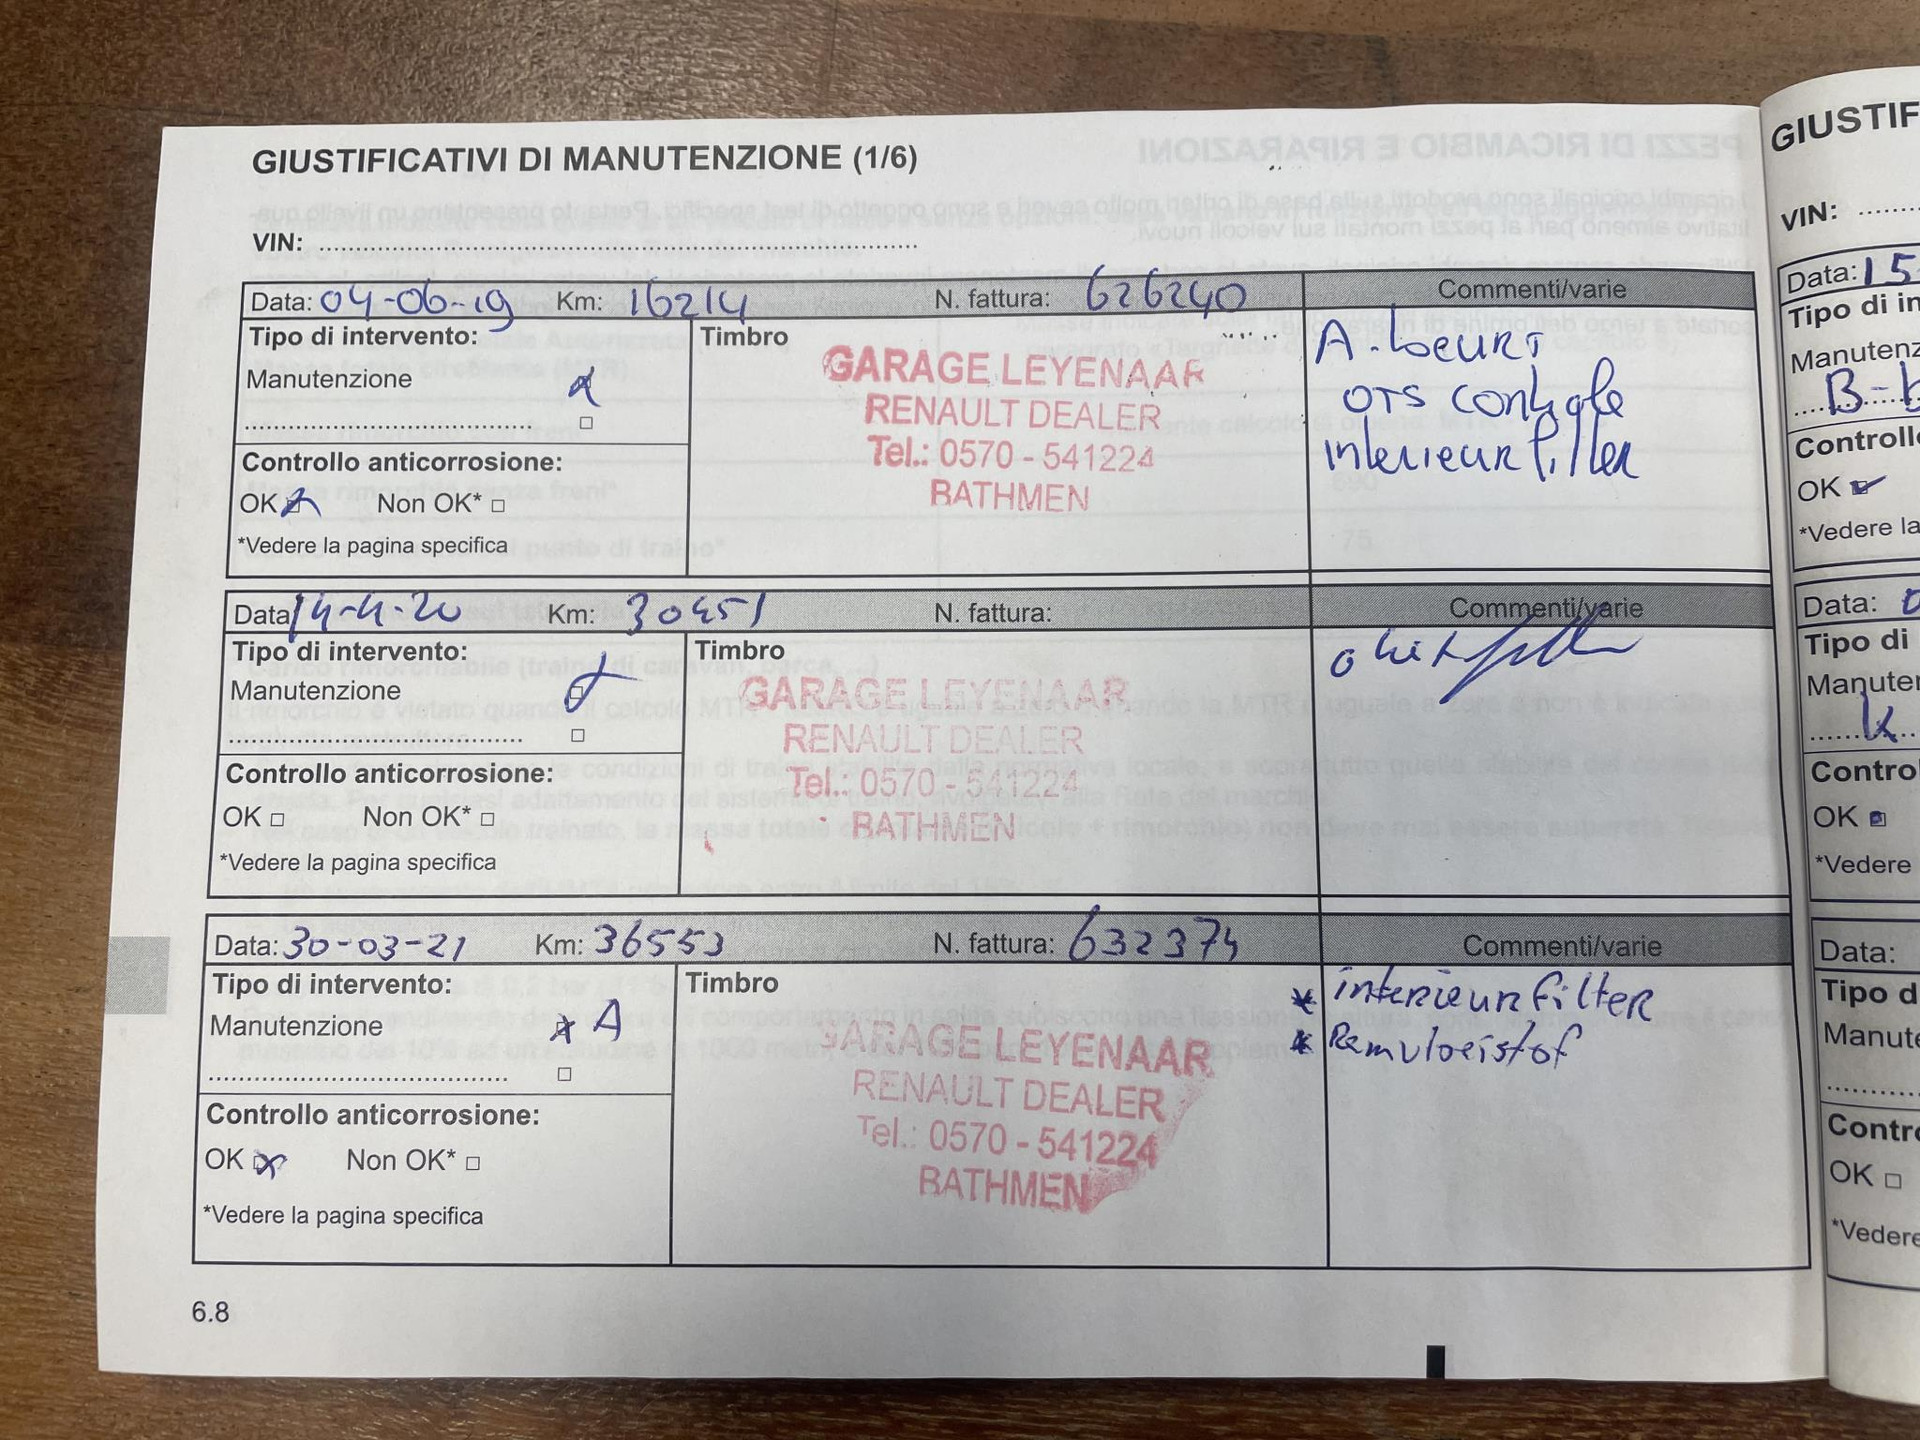 GIUSTIFICATIVI DI MANUTENZIONE (1/6)
VIN:
Data: 04-06-19 Km: 16214 N. fattura: 626240 Commenti/varie
Tipo di intervento:
Manutenzione
Timbro
GARAGE LEYENAAR
RENAULT DEALER
Tel.: 0570 - 541224
BATHMEN
A. beurt
OTS controle
interieurfilter
Controllo anticorrosione:
OK Non OK*
*Vedere la pagina specifica
Data 14-4-20 Km: 30451 N. fattura: Commenti/varie
Tipo di intervento:
Manutenzione
Timbro
GARAGE LEYENAAR
RENAULT DEALER
Tel.: 0570 - 541224
BATHMEN
Controllo anticorrosione:
OK Non OK*
*Vedere la pagina specifica
Data: 30-03-21 Km: 36553 N. fattura: 632374 Commenti/varie
Tipo di intervento:
Manutenzione A
Timbro
GARAGE LEYENAAR
RENAULT DEALER
Tel.: 0570 - 541224
BATHMEN
* interieurfilter
* Remvloeistof
Controllo anticorrosione:
OK Non OK*
*Vedere la pagina specifica
6.8
GIUSTIF
VIN:
Data: 15
Tipo di in
Manutenz
B-b
Controll
OK
*Vedere la
Data: 0
Tipo di
Manuter
k
Contro
OK
*Vedere
Data:
Tipo d
Manute
Contr
OK
*Vedere